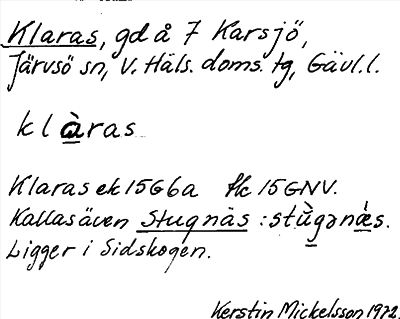 Klaras, gd å 7 Karsjö,
Järvsö sn, V. Häls. doms. tg, Gävl. l.
klàras
Klaras ek 15G6a fk 15GNV.
Kallas även Stugnäs : stùgənä́s.
Ligger i Sidskogen.
Kerstin Mickelsson 1972.